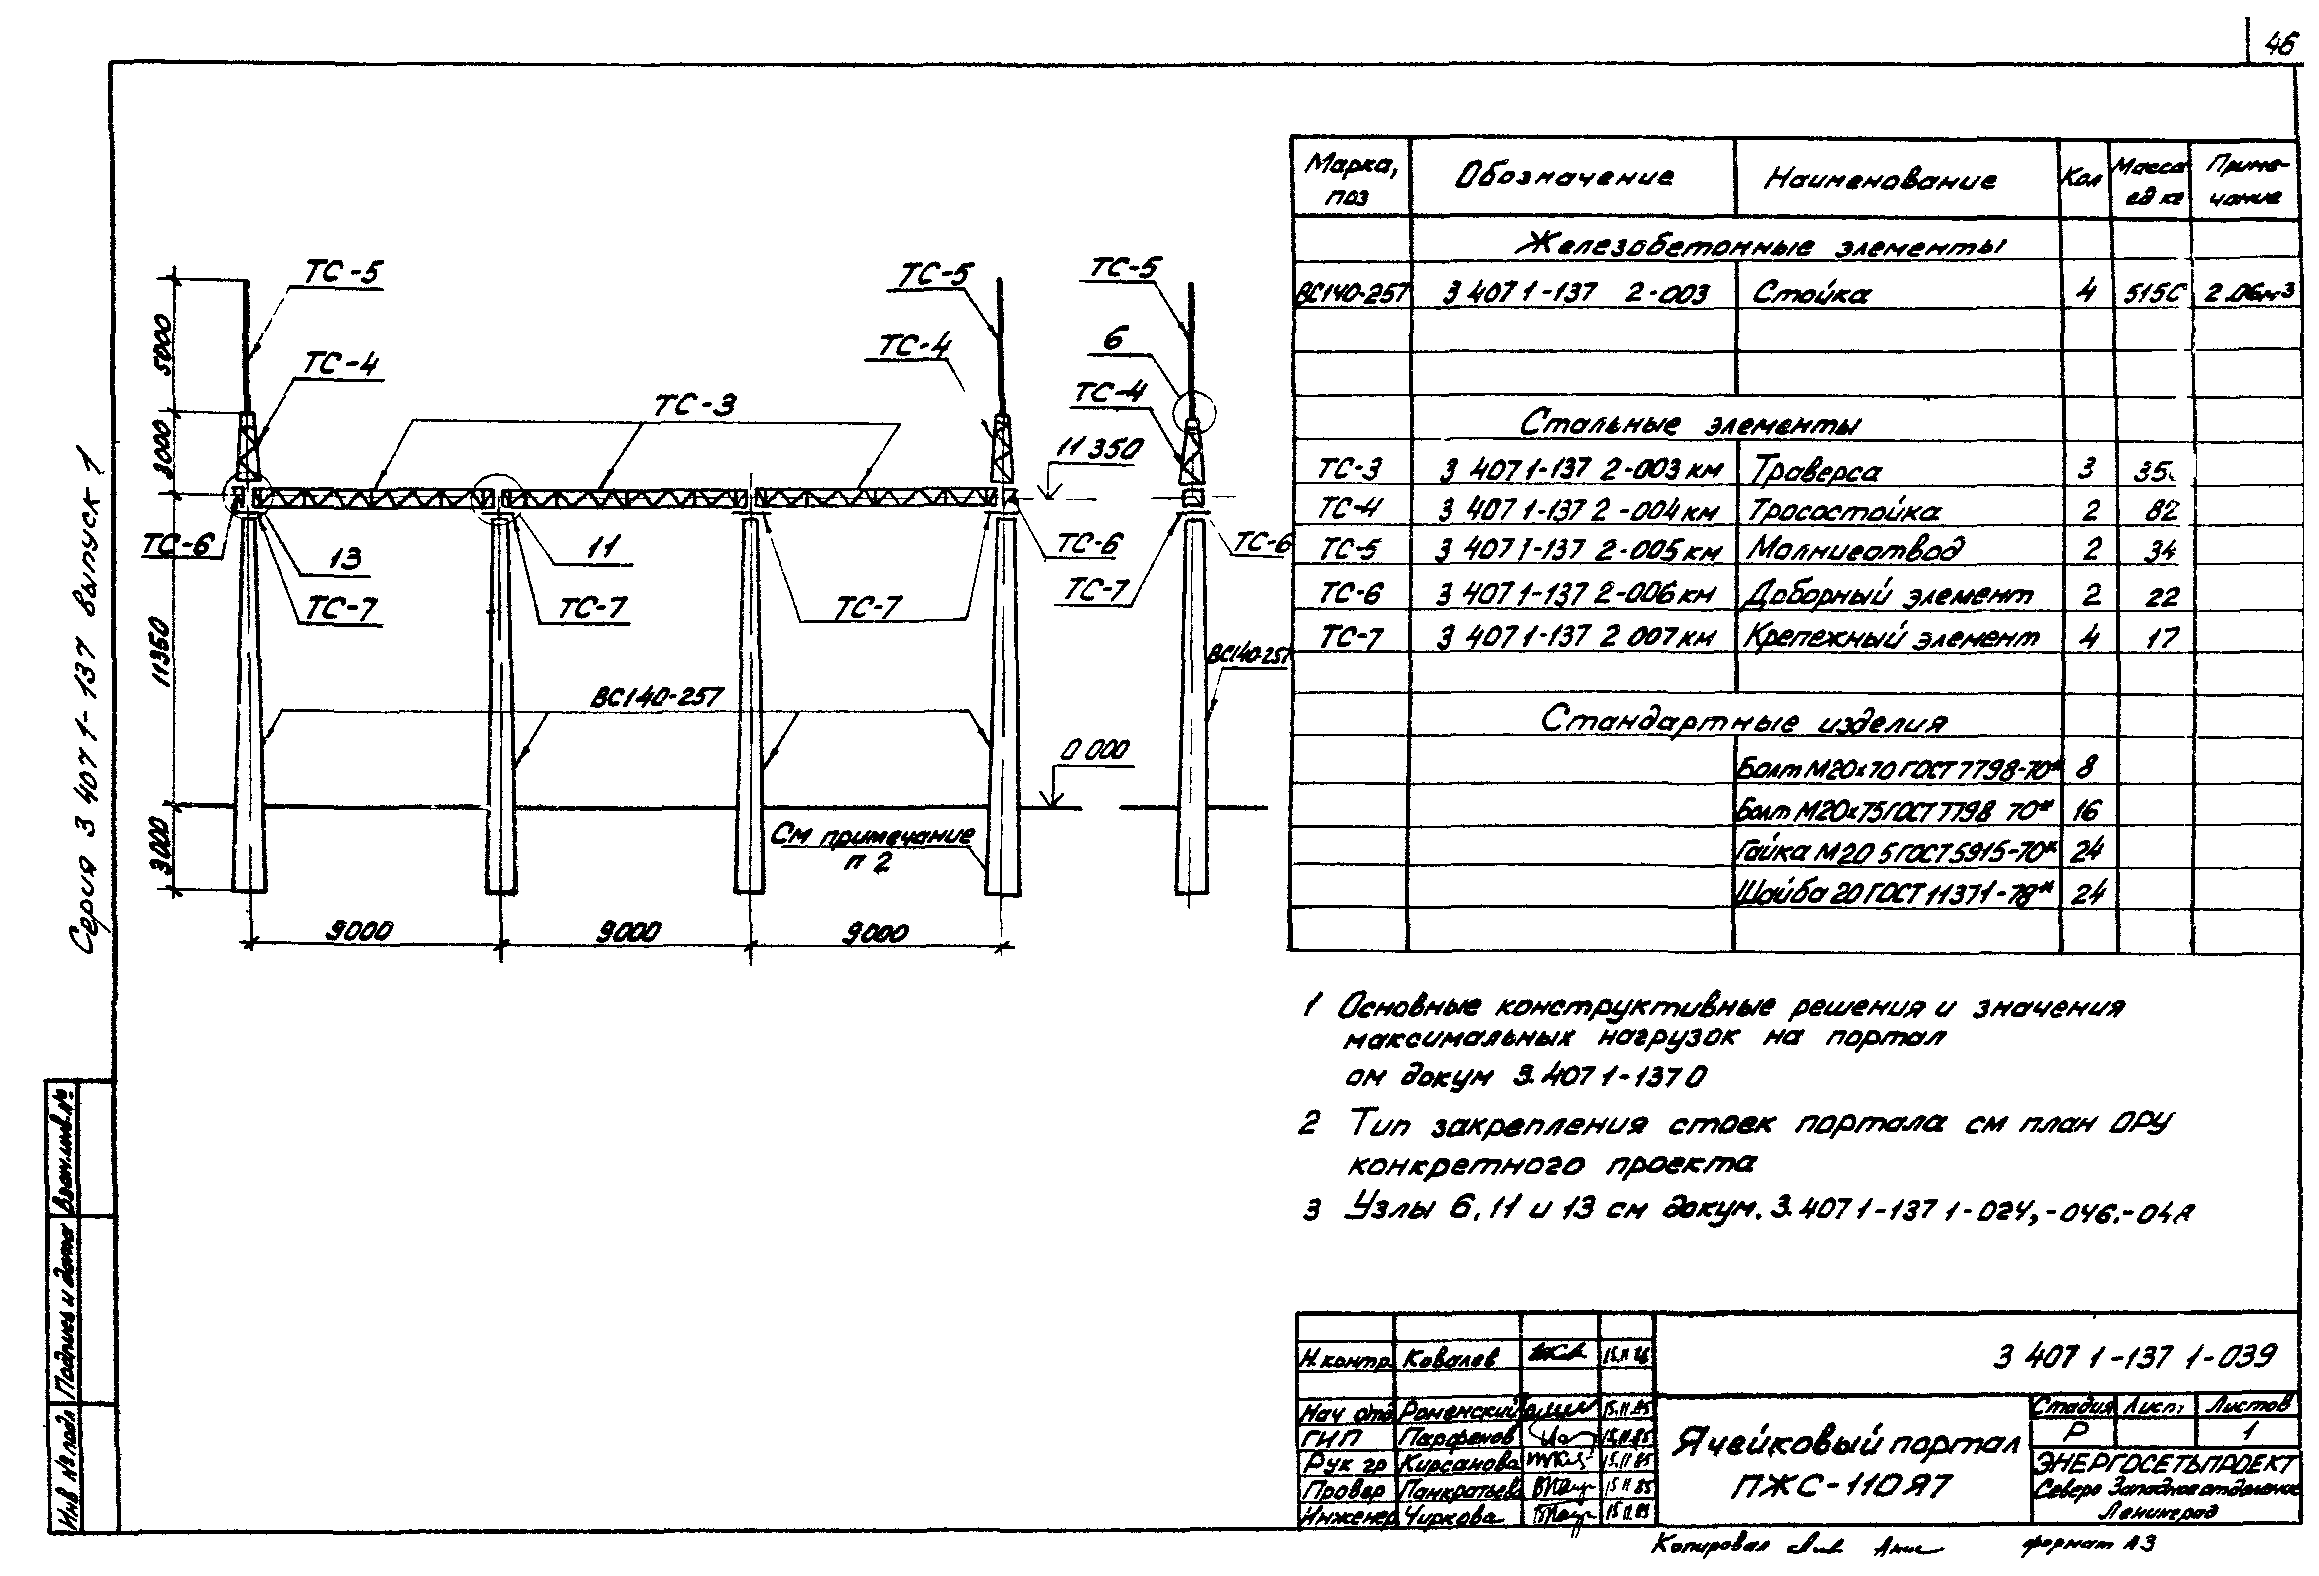 46
Серия 3 407 1-137 выпуск 1
ТС-5
ТС-5
ТС-5
ТС-4
ТС-4
6
ТС-4
ТС-3
11 350
5000
3000
11350
3000
ТС-6
13
11
ТС-6
ТС-6
ТС-7
ТС-7
ТС-7
ТС-7
ВС140-257
ВС140-257
0 000
См примечание
п 2
9000 9000 9000
Марка, поз Обозначение Наименование Кол Масса ед кг Приме-чание
Железобетонные элементы
ВС140-257 3 407 1-137 2-003 Стойка 4 2.06м3
Стальные элементы
ТС-3 3 407 1-137 2-003 км Траверса 3
ТС-4 3 407 1-137 2-004 км Тросостойка 2 82
ТС-5 3 407 1-137 2-005 км Молниеотвод 2 34
ТС-6 3 407 1-137 2-006 км Доборный элемент 2 22
ТС-7 3 407 1-137 2 007 км Крепежный элемент 4 17
Стандартные изделия
Болт М20х70 ГОСТ 7798-70* 8
Болт М20х75 ГОСТ 7798 70* 16
Гайка М20 5 ГОСТ 5915-70* 24
Шайба 20 ГОСТ 11371-78* 24
1 Основные конструктивные решения и значения
максимальных нагрузок на портал
см докум 3.407 1-137 0
2 Тип закрепления стоек портала см план ОРУ
конкретного проекта
3 Узлы 6, 11 и 13 см докум. 3.407 1-137 1-024, -046,
Взам.инв.№
Подпись и дата
Инв № подл
Н.контр Ковалев
Нач отд Роменский 15.11.85
ГИП Парфенов 15.11.85
Рук гр Кирсанова 15.11 85
Провер Панкратьева 15 11 85
Инженер Чиркова 15.11.85
3 407 1-137 1-039
Ячейковый портал
ПЖС-110Я7
Стадия Лист Листов
Р 1
ЭНЕРГОСЕТЬПРОЕКТ
Северо Западное отделение
Ленинград
Копировал
формат А3